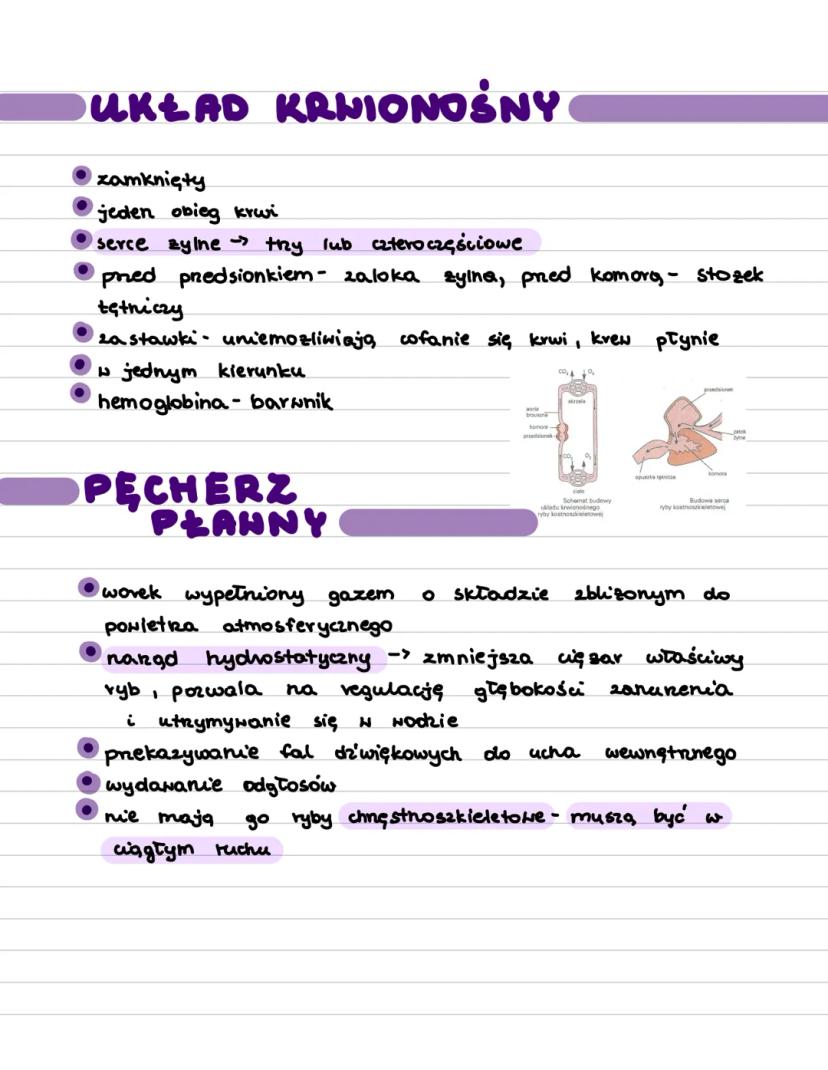 UKŁAD KRWIONOŚNY
zamknięty
jeden obieg krwi
serce żylne → trzy lub czteroczęściowe
przed przedsionkiem - zatoka żylna, przed komorą - stożek
tętniczy
zastawki - uniemożliwiają cofanie się krwi, krew płynie
w jednym kierunku
hemoglobina - barwnik
CO₂ O₂
skrzela
aorta
brzuszna
komora
przedsionek
CO₂ O₂
ciało
Schemat budowy
układu krwionośnego
ryby kostnoszkieletowej
przedsionek
zatok
żylna
komora
opuszka tętnicza
Budowa serca
ryby kostnoszkieletowej
PĘCHERZ
PŁAWNY
worek wypełniony gazem o składzie zbliżonym do
powietrza atmosferycznego
narząd hydrostatyczny → zmniejsza ciężar właściwy
ryb, pozwala na regulację głębokości zanurzenia
i utrzymywanie się w wodzie
przekazywanie fal dźwiękowych do ucha wewnętrznego
wydawanie odgłosów
nie mają go ryby chrzęstnoszkieletowe - muszą być w
ciągłym ruchu